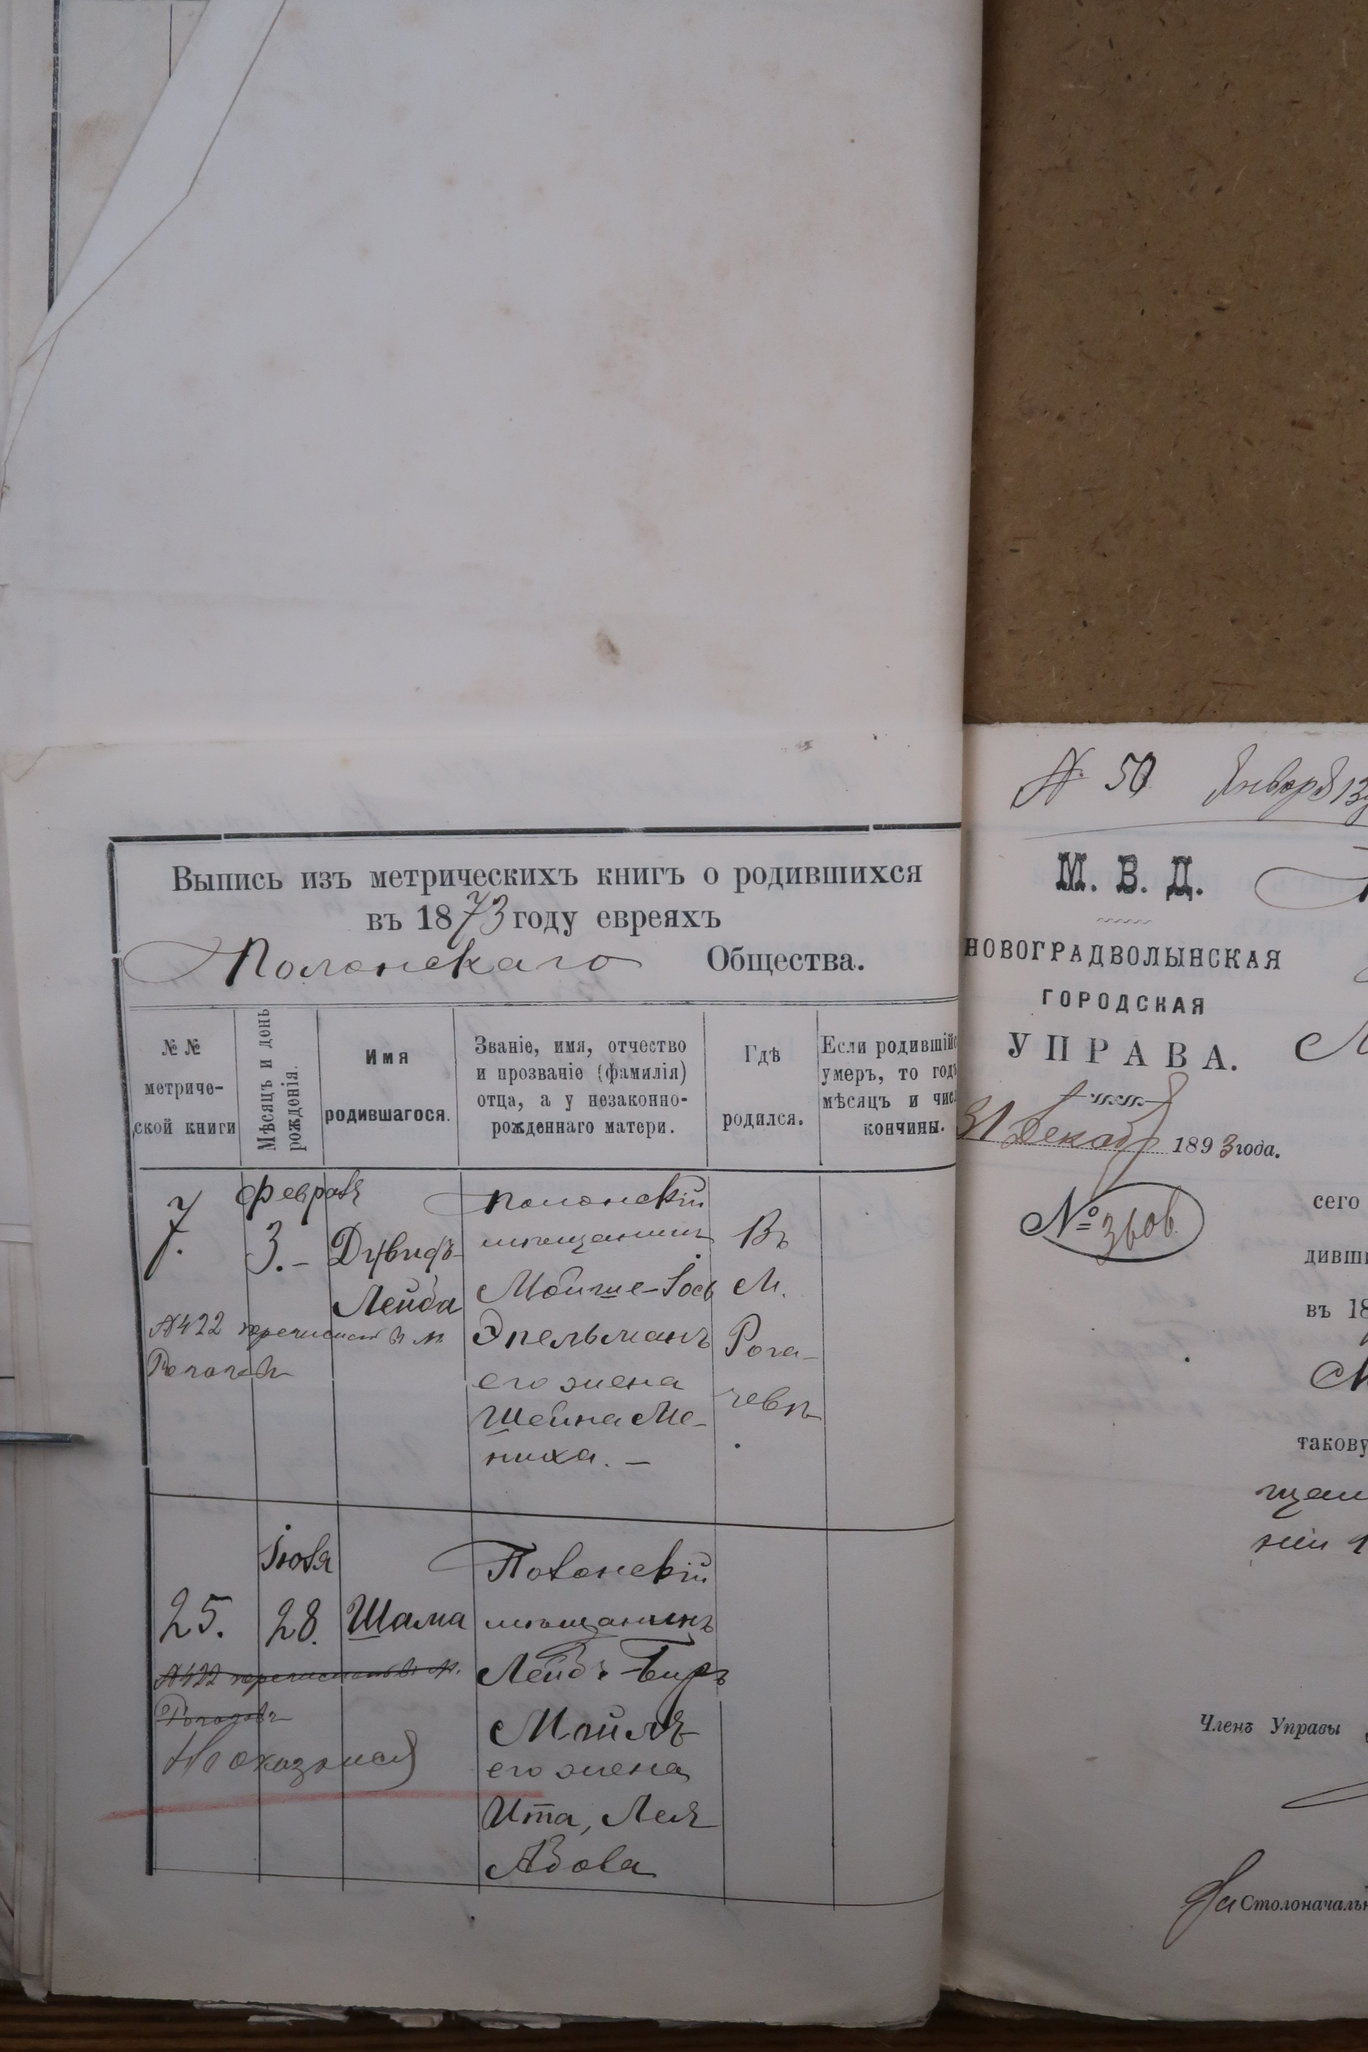 Выпись изъ метрическихъ книгъ о родившихся
въ 1873 году евреяхъ
Полонскаго Общества.
№ №
метриче-
ской книги
Мѣсяцъ и день
рожденія.
Имя
родившагося.
Званіе, имя, отчество
и прозваніе (фамилія)
отца, а у незаконно-
рожденнаго матери.
Гдѣ
родился.
Если родившійс
умеръ, то годъ
мѣсяцъ и чис
кончины.
7.
Февраля
3.-
Дувидъ-
Лейба
Полонскій
мѣщанинъ
Мойше-Іось
Эпельманъ
его жена
Шейна Ме-
ниха. -
Въ
М.
Рога-
чевѣ
№422 перечисленъ въ м.
Рогачевъ
25.
Іюля
28.
Шама
Полонскій
мѣщанинъ
Лейб-Беръ
его жена
Ита, Лея
№422 перечисленъ въ м.
Рогачевъ
№ 50 Января 13
М. В. Д.
НОВОГРАДВОЛЫНСКАЯ
ГОРОДСКАЯ
УПРАВА.
31 Декабр 1893 года.
№ 3606
сего
дивш
въ 18
такову
щан
Членъ Управы
За Столоначальн